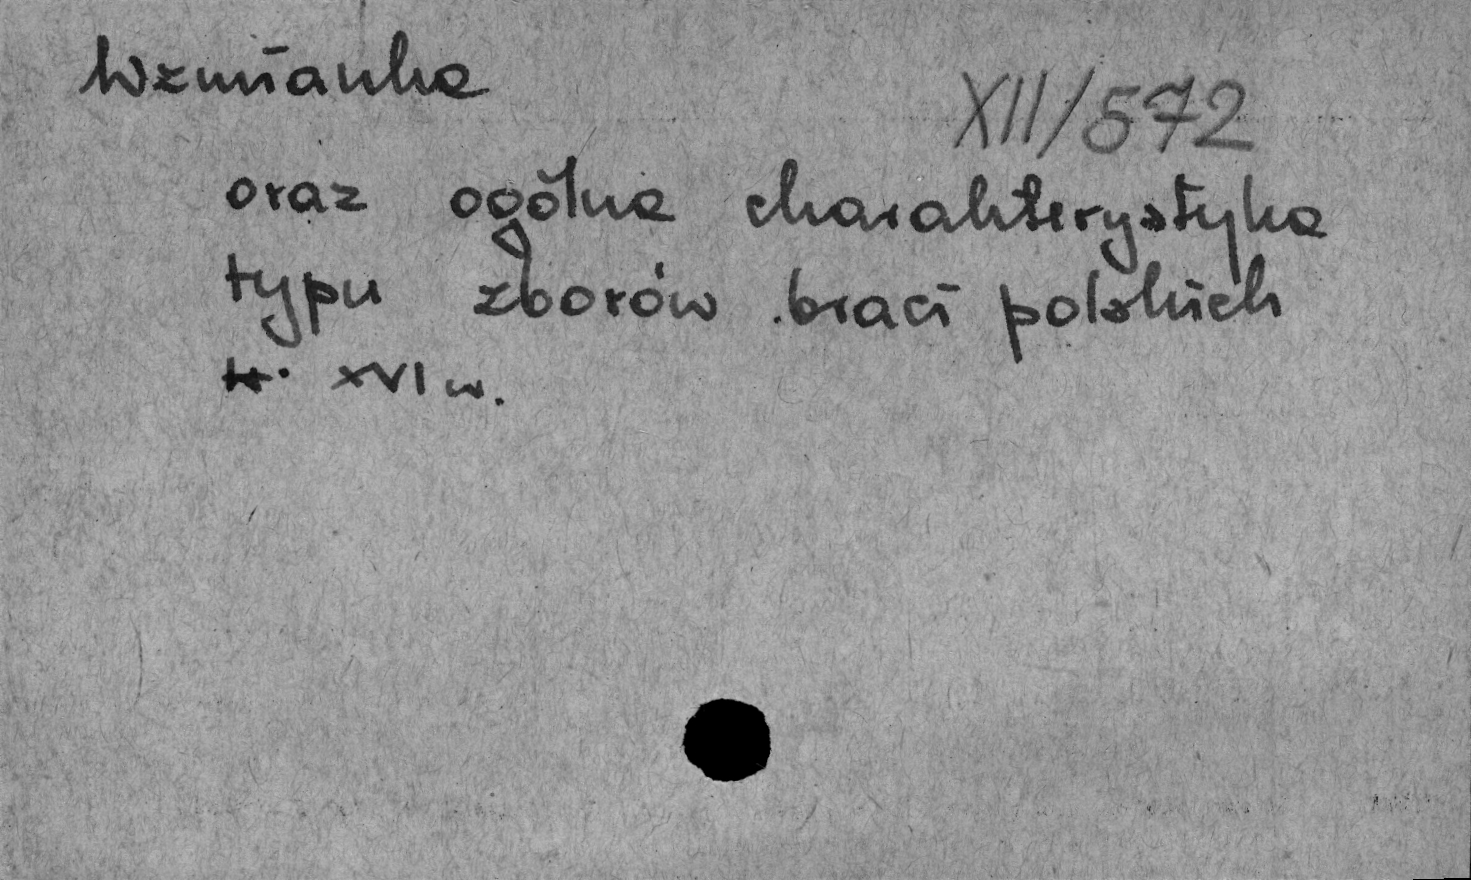 Wzmianka
XII/572
oraz ogólna charakterystyka
typu zborów braci polskich
XVI w.